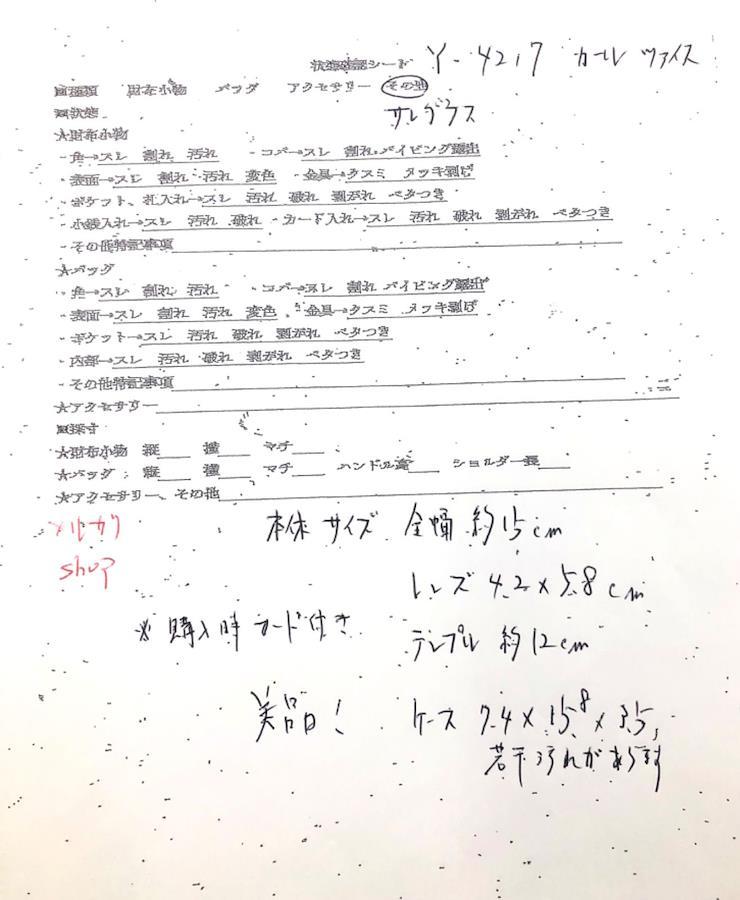 状態確認シート Y-4217 カールツァイス
■種類 財布小物 バッグ アクセサリー その他
サングラス
■状態
★財布小物
・角→スレ 割れ 汚れ ・コバ→スレ 割れ パイピング露出
・表面→スレ 割れ 汚れ 変色 ・金具→クスミ メッキ剥げ
・ポケット、札入れ→スレ 汚れ 破れ 剥がれ ベタつき
・小銭入れ→スレ 汚れ 破れ ・カード入れ→スレ 汚れ 破れ 剥がれ ベタつき
・その他特記事項
★バッグ
・角→スレ 割れ 汚れ ・コバ→スレ 割れ パイピング露出
・表面→スレ 割れ 汚れ 変色 ・金具→クスミ メッキ剥げ
・ポケット→スレ 汚れ 破れ 剥がれ ベタつき
・内部→スレ 汚れ 破れ 剥がれ ベタつき
・その他特記事項
★アクセサリー
■採寸
★財布小物 縦 横 マチ
★バッグ 縦 横 マチ ハンドル高 ショルダー長
★アクセサリー、その他
メルカリ
shop
本体サイズ 全幅 約15cm
レンズ 4.2×5.8cm
※購入時カード付き
テンプル 約12cm
美品!
ケース 7.4×15.8×3.5
若干汚れがあります